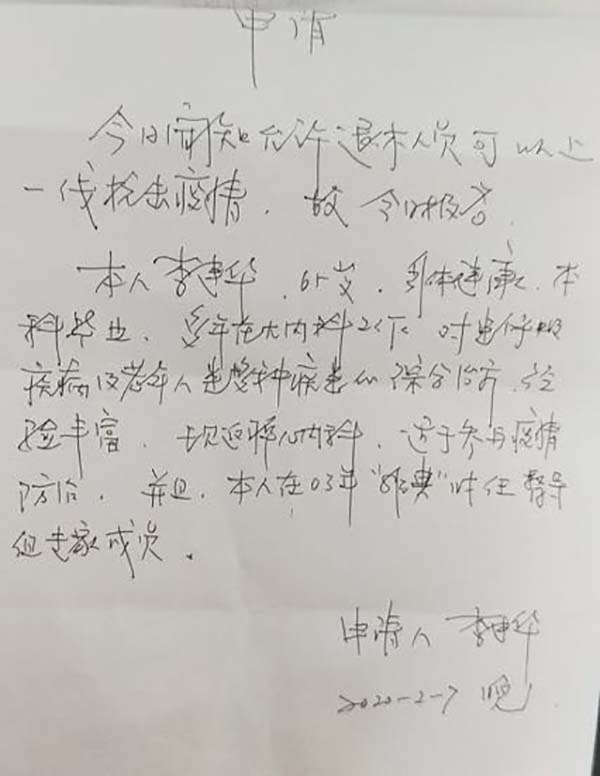 申请
今日得知允许退休人员可以上
一线抗击疫情，故今日报告
本人李建华，65岁，身体健康，本
科毕业，多年在大内科工作，对
疾病及老年人多种疾患的综合治疗，经
验丰富，现返聘心内科，适于参与疫情
防治，并且，本人在03年“非典”时任督导
组专家成员。
申请人 李建华
2020-2-7 晚